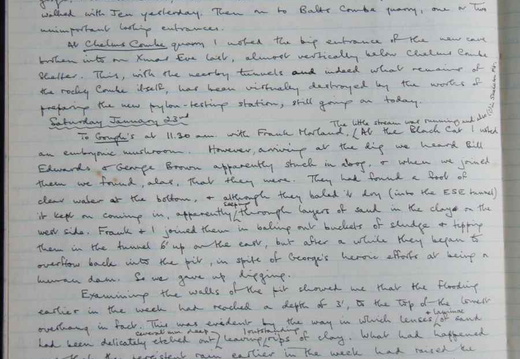 walked with Jen yesterday. Then on to Balch Combe quarry, one or two
unimportant looking entrances.
At Chelms Combe quarry I noted the big entrance of the new cave
broken into on Xmas Eve last, almost vertically below Chelms Combe
Shelter. This, with the nearby tunnels and indeed what remains of
the rocky Combe itself, has been virtually destroyed by the works of
preparing the new pylon-testing station, still going on today.
Saturday January 23rd
The little stream was running and also
To Gough's at 11.30 am with Frank Morland. (At the Black Cat I noted
an embryonic mushroom. However, arriving at the dig we heard Bill
Edwards & George Brown apparently stuck in a bog, & when we joined
them we found, alas, that they were. They had found a foot of
clear water at the bottom, & although they baled it dry (into the ESE tunnel)
it kept on coming in, apparently seeping through layers of sand in the clay on the
west side. Frank & I joined them in baling out buckets of sludge & tipping
them in the tunnel 6' up on the east, but after a while they began to
overflow back into the pit, in spite of George's heroic efforts at being a
human dam. So we gave up digging.
Examining the walls of the pit showed me that the flooding
earlier in the week had reached a depth of 3', to the top of the lowest
overhang in fact. This was evident by the way in which lenses & laminae of sand
had been delicately etched out several mm deep leaving protruding ribs of clay. What had happened
persistent rain earlier in the week had raised the